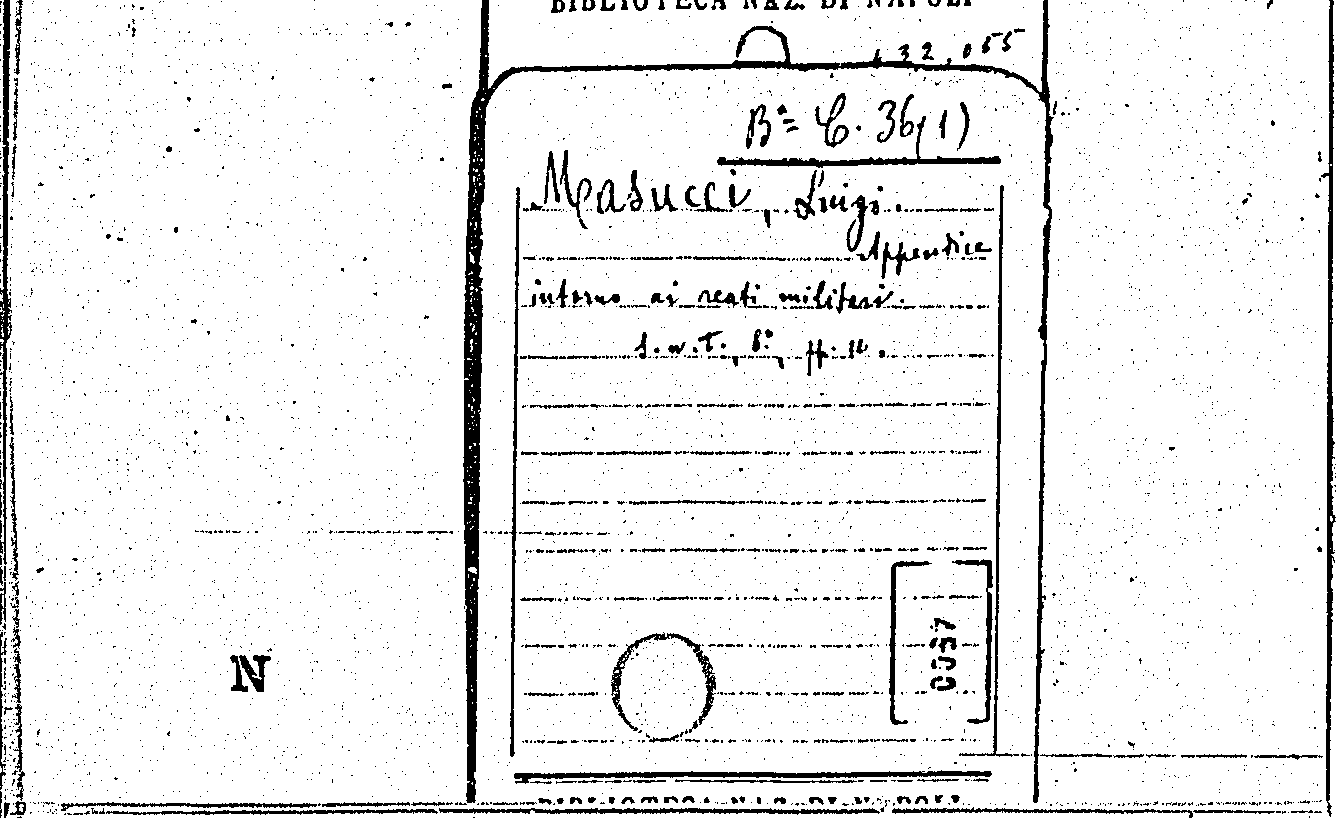 BIBLIOTECA NAZ. DI NAPOLI
B^a= C. 36(1)
Masucci, Luigi.
Appendice
intorno ai reati militari.
s.n.T., 8°, pp.
0057
N
BIBLIOTECA NAZ. DI NAPOLI